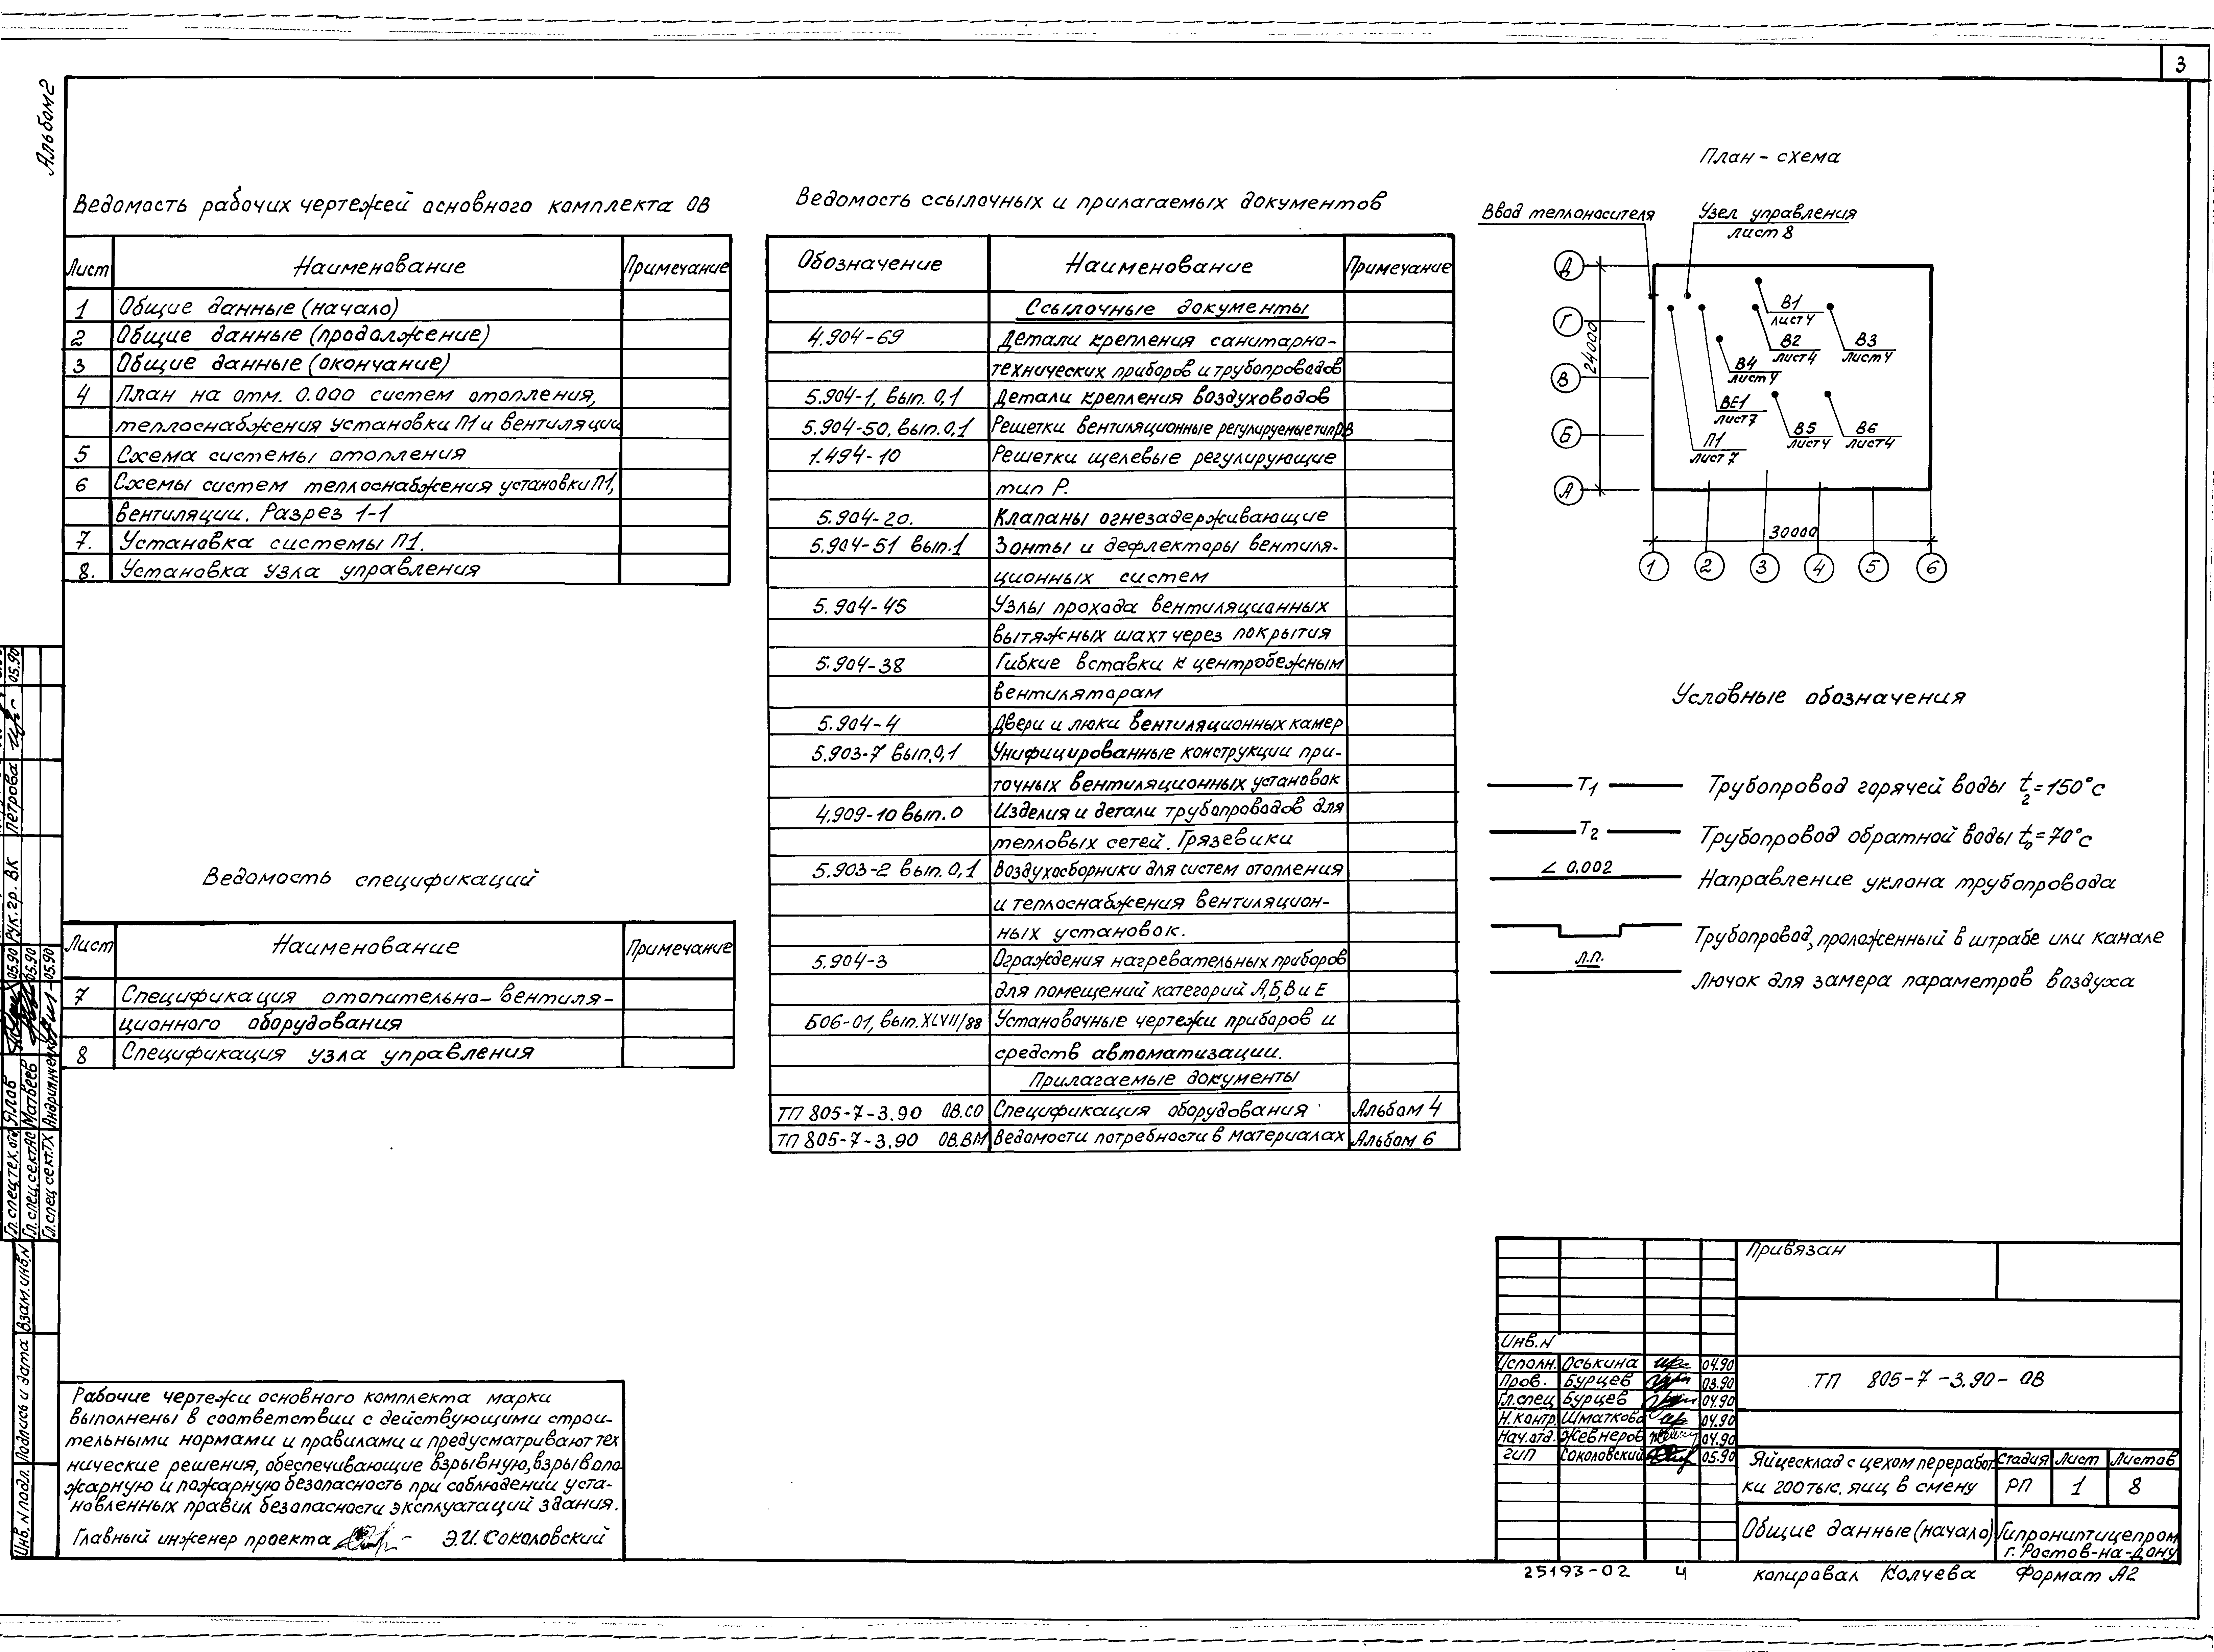 3
Альбом 2
Ведомость рабочих чертежей основного комплекта ОВ
Лист Наименование Примечание
1 Общие данные (начало)
2 Общие данные (продолжение)
3 Общие данные (окончание)
4 План на отм. 0.000 систем отопления,
теплоснабжения установки П1 и вентиляции
5 Схема системы отопления
6 Схемы систем теплоснабжения установки П1,
вентиляции. Разрез 1-1
7. Установка системы П1.
8. Установка узла управления
Ведомость спецификаций
Лист Наименование Примечание
7 Спецификация отопительно-вентиля-
ционного оборудования
8 Спецификация узла управления
Рабочие чертежи основного комплекта марки
выполнены в соответствии с действующими строи-
тельными нормами и правилами и предусматривают тех
нические решения, обеспечивающие взрывную, взрывопо
жарную и пожарную безопасность при соблюдении уста-
новленных правил безопасности эксплуатаций здания.
Главный инженер проекта Э.И. Соколовский
Ведомость ссылочных и прилагаемых документов
Обозначение Наименование Примечание
Ссылочные документы
4.904-69 Детали крепления санитарно-
технических приборов и трубопроводов
5.904-1, вып. 0,1 Детали крепления воздуховодов
5.904-50, вып. 0,1 Решетки вентиляционные регулируемые тип РВ
1.494-10 Решетки щелевые регулирующие
тип Р.
5.904-20. Клапаны огнезадерживающие
5.904-51 вып.1 Зонты и дефлекторы вентиля-
ционных систем
5.904-45 Узлы прохода вентиляционных
вытяжных шахт через покрытия
5.904-38 Гибкие вставки к центробежным
вентиляторам
5.904-4 Двери и люки вентиляционных камер
5.903-7 вып.0,1 Унифицированные конструкции при-
точных вентиляционных установок
4.909-10 вып.0 Изделия и детали трубопроводов для
тепловых сетей. Грязевики
5.903-2 вып. 0,1 Воздухосборники для систем отопления
и теплоснабжения вентиляцион-
ных установок.
5.904-3 Ограждения нагревательных приборов
для помещений категорий А, Б, В и Е
Б06-01, вып. XLVII/88 Установочные чертежи приборов и
средств автоматизации.
Прилагаемые документы
ТП 805-7-3.90 ОВ.СО Спецификация оборудования Альбом 4
ТП 805-7-3.90 ОВ.ВМ Ведомости потребности в материалах Альбом 6
План-схема
Ввод теплоносителя
Узел управления
лист 8
Д
Г
В
Б
А
24000
В1
лист 4
В2
лист 4
В3
лист 4
В4
лист 4
ВЕ1
лист 7
П1
лист 7
В5
лист 4
В6
лист 4
30000
1 2 3 4 5 6
Условные обозначения
Т1 Трубопровод горячей воды t2=150°С
Т2 Трубопровод обратной воды t0=70°С
∠ 0.002 Направление уклона трубопровода
Трубопровод, проложенный в штрабе или канале
л.п. Лючок для замера параметров воздуха
Привязан
Инв.N
Исполн. Оськина 04.90
Пров. Бурцев 03.90
Гл.спец Бурцев 04.90
Н.контр. Шматкова 04.90
Нач.отд. Жевнеров 04.90
ГИП Соколовский 05.90
ТП 805-7-3.90-ОВ
Яйцесклад с цехом переработ-
ки 200тыс. яиц в смену
Стадия Лист Листов
РП 1 8
Общие данные (начало)
Гипрониптицепром
г. Ростов-на-Дону
25193-02 4
копировал Колчева Формат А2
Рук. гр. ВК Петрова 05.90
Гл. спец. тех. отд. Ялов 05.90
Гл. спец. сект АС Матвеев 05.90
Гл. спец сект. ТХ 05.90
Взам. инв. N
Подпись и дата
Инв. N подл.